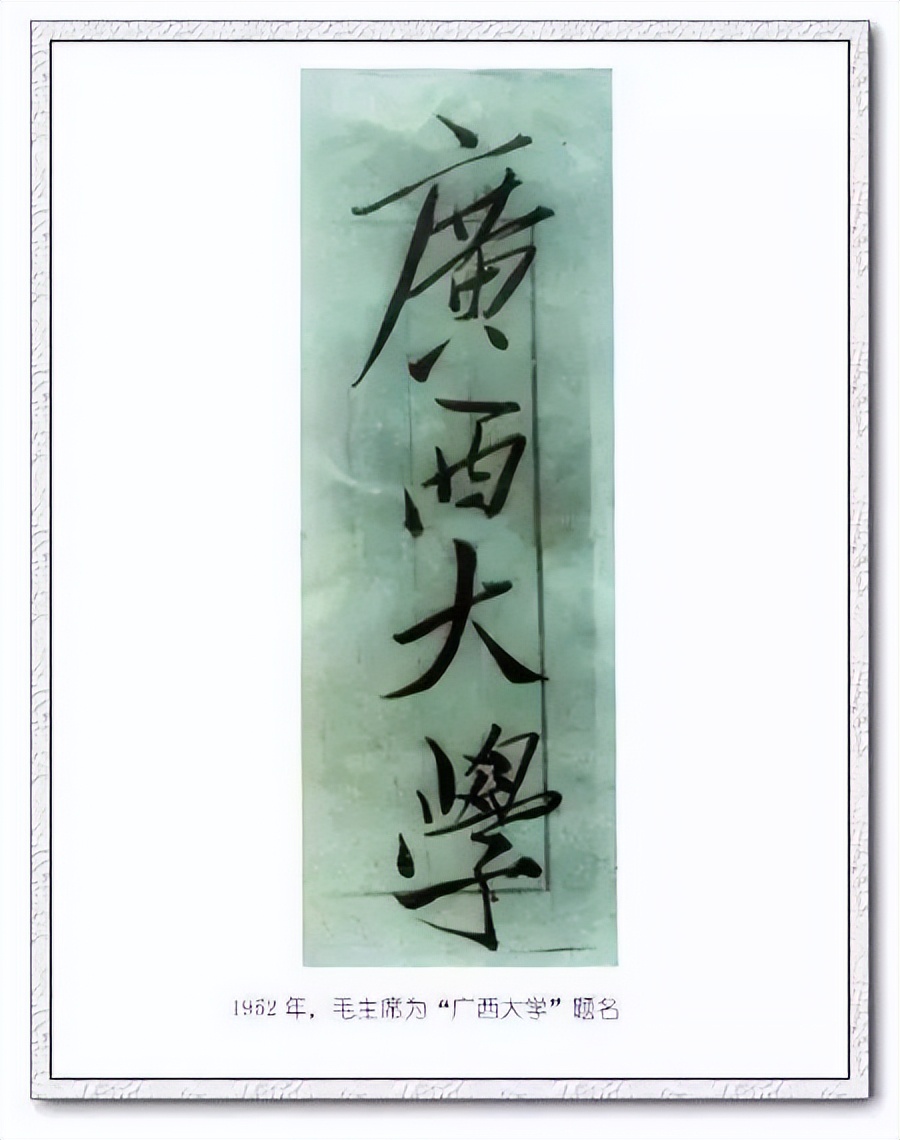 廣西大學
1952 年，毛主席为“广西大学”题名